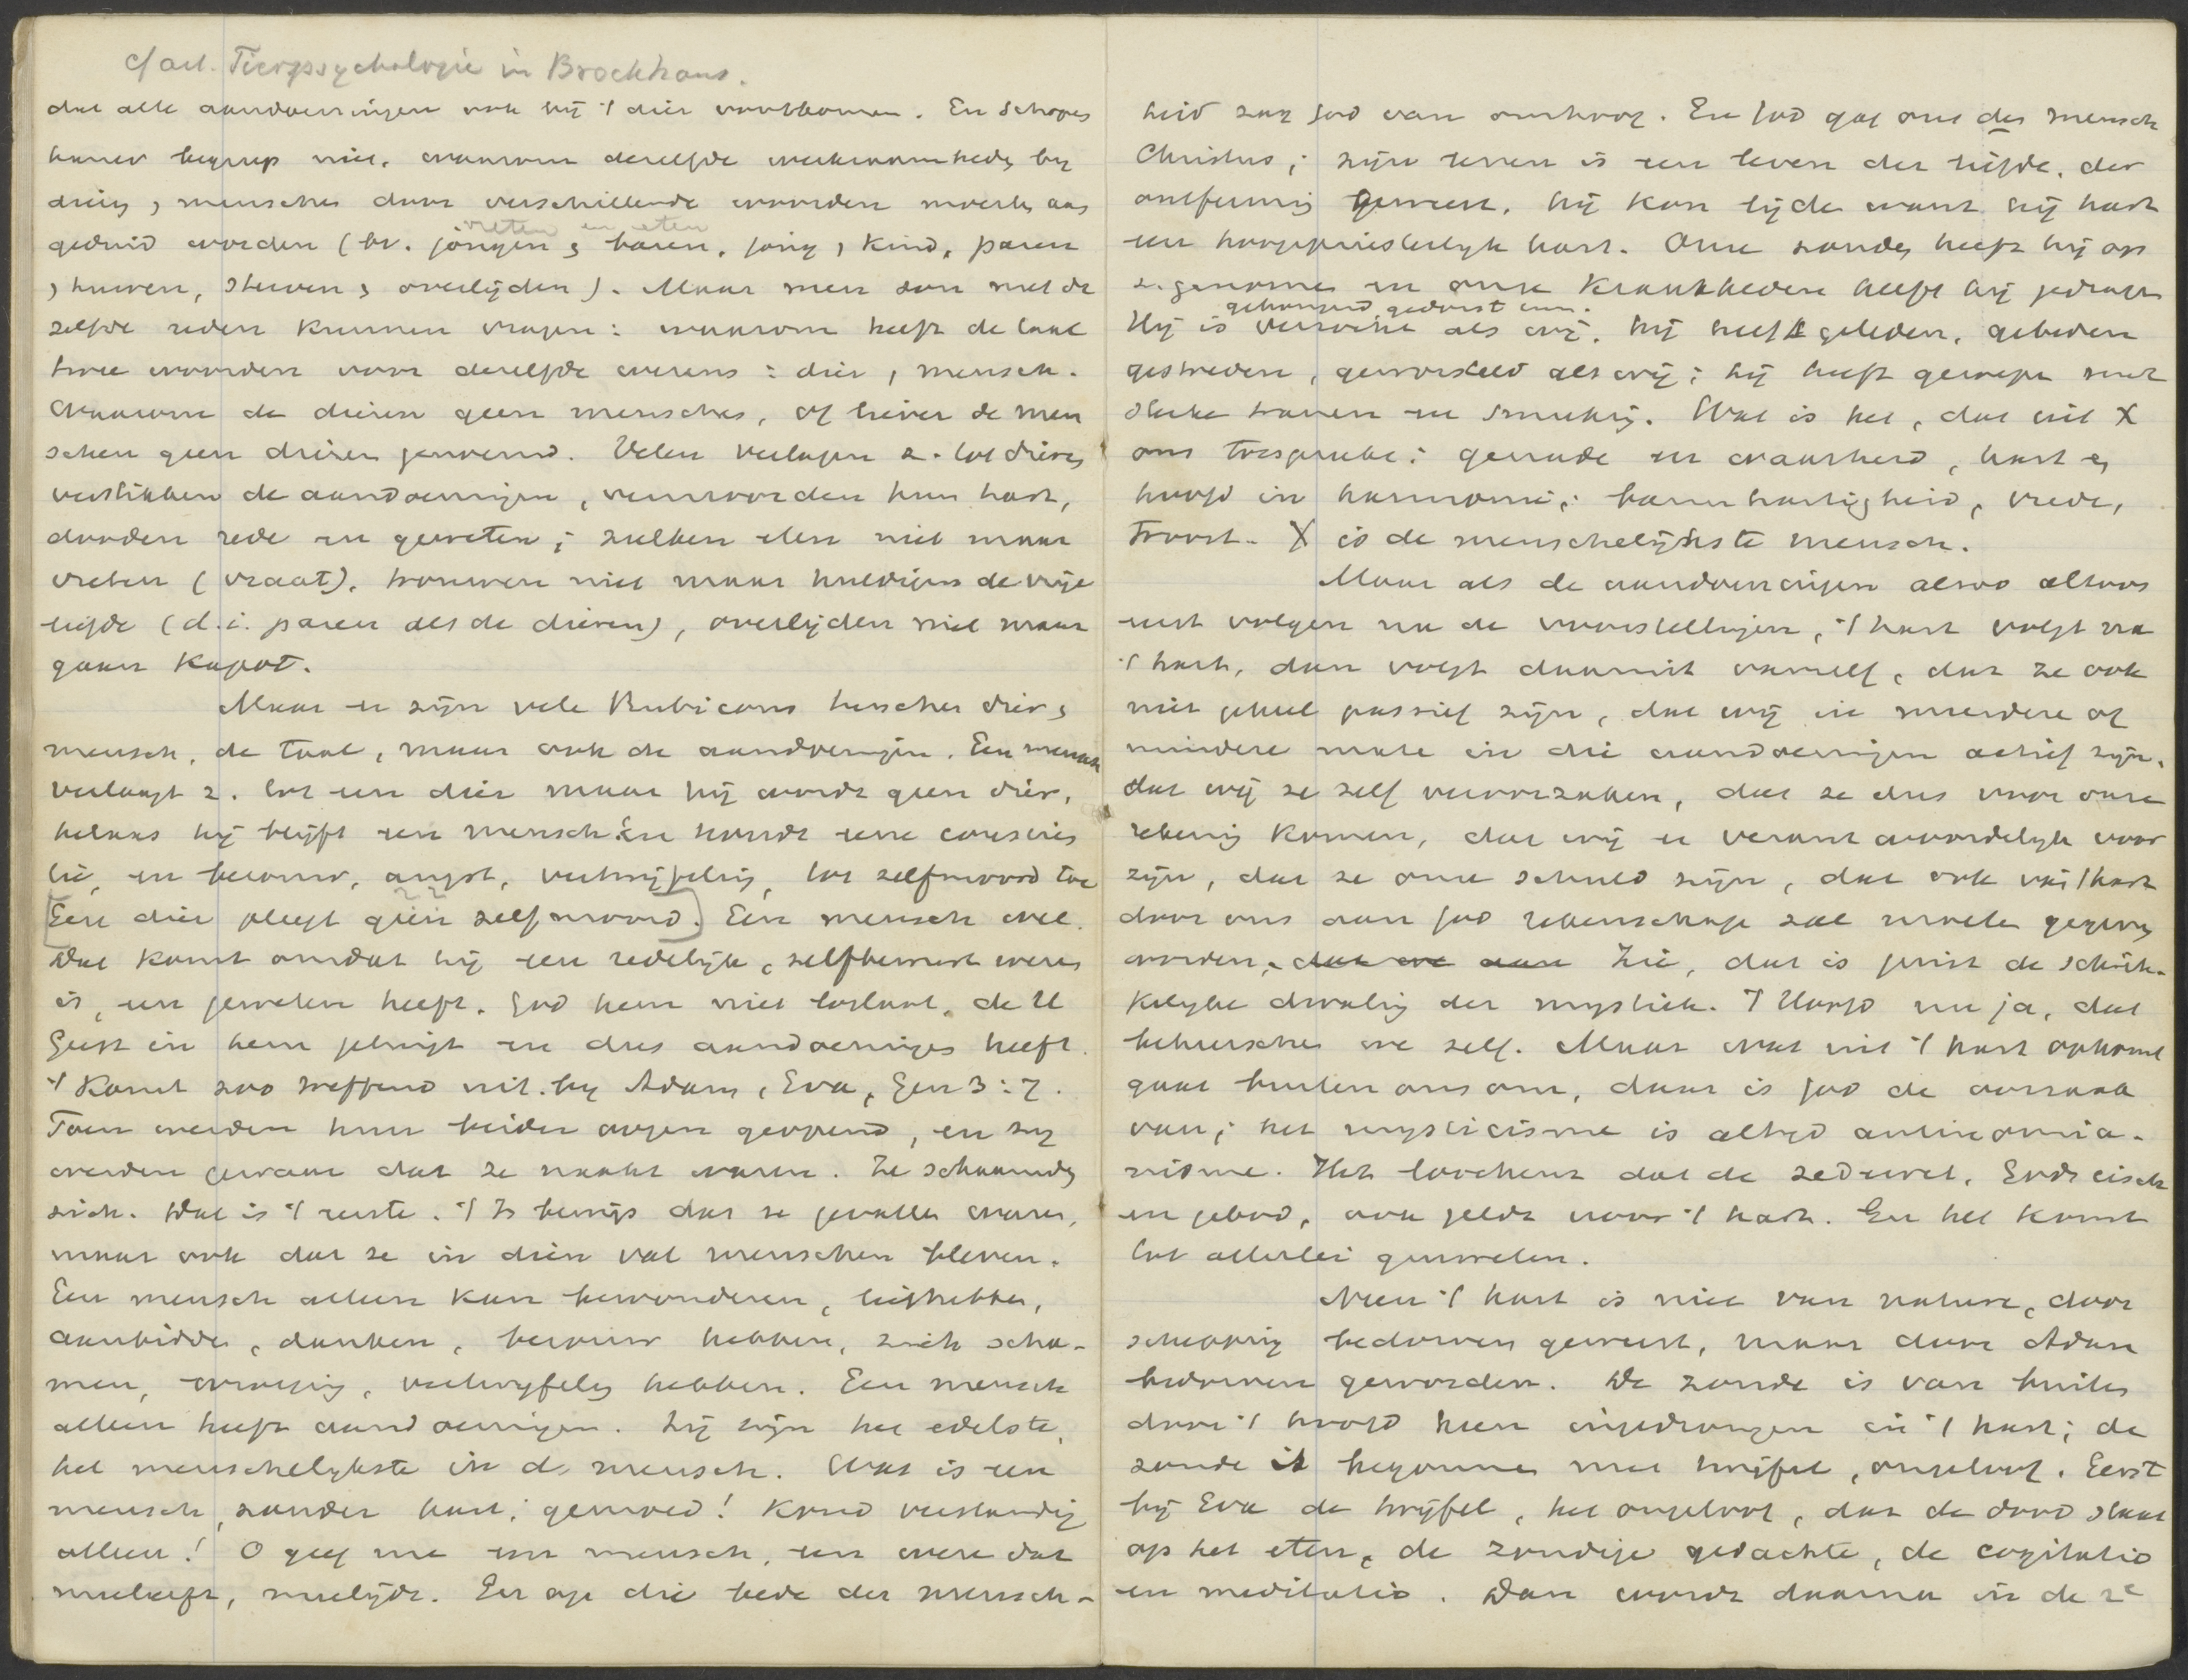 cf art. Tierpsychologie in Brockhaus.
dat alle aandoeningen ook bij 't dier voorkomen. En Schopen
hauer begreep niet, waarom dezelfde werkzaamheden by
dier, mensch door verschillende woorden moesten aan
vreten en eten
geduid worden (bv. jongen, baren, jong, kind, paren
, huwen, sterven, overlijden). Maar men zou met de
zelfde reden kunnen vragen: waarom heeft de taal
twee woorden voor dezelfde wezens: dier, mensch.
Waarom de dieren geen menschen, of liever de men
schen geen dieren genoemd. Velen verlagen z. tot dieren
verstikken de aandoeningen, vermoorden hun hart,
dooden rede en geweten; zulken eten niet maar
vreten (vraat), trouwen niet maar huldigen de vrije
liefde (d.i. paren als de dieren), overlijden niet maar
gaan kapot.
Maar er zijn vele Rubicons tusschen dier,
mensch, de taal, maar ook de aandoeningen. Een mensch
verlaagt z. tot een dier maar hij wordt geen dier,
helaas hij blijft een mensch en houdt eene conscien
tie, en berouw, angst, vertwijfeling, tot zelfmoord toe
[Een dier pleegt geen zelfmoord.] Een mensch wel.
Dat komt omdat hij een redelijk, zelfbewust wezen
is, een geweten heeft. God hem niet loslaat, de H
Geest in hem getuigt en dus aandoeningen heeft.
't Komt zoo treffend uit by Adam, Eva, Gen 3:7.
Toen werden hun beider oogen geopend, en zy
werden gewaar dat ze naakt waren. Ze schaamden
zich. Dat is 't eerste. 't Is bewijs dat ze gevallen waren,
maar ook dat ze in dien val menschen bleven.
Een mensch alleen kan bewonderen, liefhebben,
aanbidden, danken, berouw hebben, zich scha-
men, wroeging, vertwyfeling hebben. Een mensch
alleen heeft aandoeningen. Zij zijn het edelste,
het menschelykste in d. mensch. Wat is een
mensch, zonder hart, gemoed! Koud verstandig
alleen! O geef me een mensch, een wezen dat
meeleeft, meelijdt. En op die bede der mensch-
heid zag God van omhoog. En God gaf ons den mensch
Christus; zijn leven is een leven der liefde, der
ontferming geweest. hij kon lijden want hij had
een hoogepriesterlyk hart. Onze zonden heeft hij op
z. genomen en onze krankheden heeft hij gedragen
gehongerd, gedorst enz.
Hij is verzocht als wij. hij heeft geleden, gebeden
gestreden, geworsteld als wij; hij heeft geroepen met
sterke tranen en smeeking. Wat is het, dat uit X
ons toespreke: genade en waarheid, hart en
hoofd in harmonie; barmhartigheid, vrede,
troost. X is de menschelijkste mensch.
Maar als de aandoeningen alzoo althans
eerst volgen na de voorstellingen, 't hart volgt na
't hart, dan volgt daaruit vanzelf, dat ze ook
niet geheel passief zijn, dat wij in meerdere of
mindere mate in die aandoeningen actief zijn,
dat wij ze zelf veroorzaken, dat ze dus voor onze
rekening komen, dat wij er verantwoordelyk voor
zijn, dat ze onze schuld zijn, dat ook van 't hart
door ons aan God rekenschap zal moeten gegeven
worden, dat we aan Zie, dat is juist de schrik-
kelyke dwaling der mystiek. 't Hoofd nu ja, dat
beheerschen we zelf. Maar wat uit 't hart opkomt
gaat buiten ons om, daar is God de oorzaak
van; het mysticisme is altijd antinomia-
nisme. Het loochent dat de zedewet, Gods eisch
en gebod, ook geldt voor 't hart. En het komt
tot allerlei gruwelen.
Neen 't hart is niet van nature, door
schepping bedorven geweest, maar door Adam
bedorven geworden. De zonde is van buiten
door 't hoofd heen ingedrongen in 't hart; de
zonde is begonnen met twijfel, ongeloof. Eerst
bij Eva de twijfel, het ongeloof, dat de dood staat
op het eten, de zondige gedachte, de cogitatio
en meditatio. Dan wordt daarna in de 2e